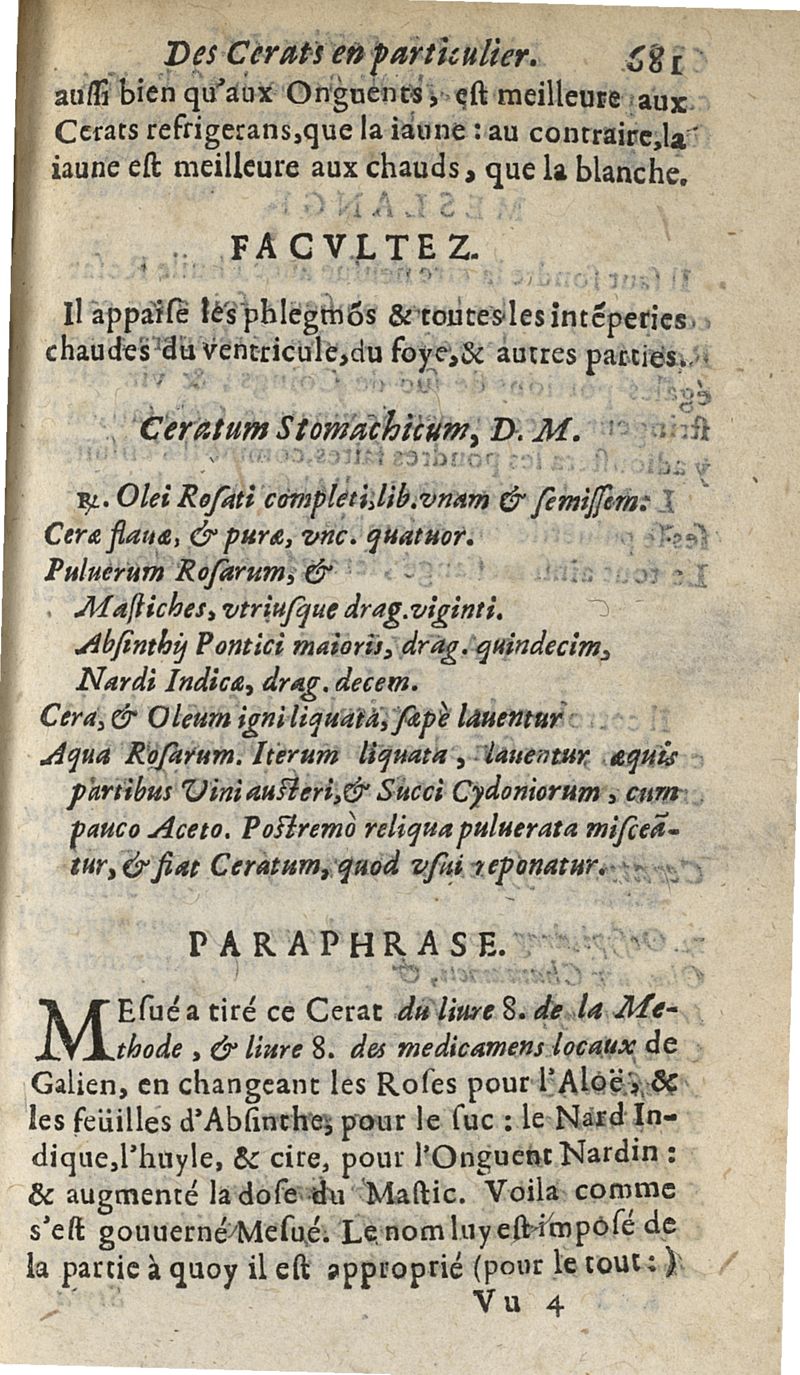 Des Cerats en particulier. 681
auſſi bien qu'aux Onguents, eſt meilleure aux
Cerats refrigerans,que la iaune : au contraire,la
iaune eſt meilleure aux chauds, que la blanche.
FACVLTEZ.
Il appaiſe les phlegmõs & toutes les intẽperies
chaudes du ventricule,du foye,& autres parties.
Ceratum Stomachicum, D. M.
℞. Olei Roſati completi,lib.vnam & ſemiſſem:
Ceræ flauæ, & puræ, vnc. quatuor.
Puluerum Roſarum, &
Maſtiches, vtriuſque drag.viginti.
Abſinthij Pontici maioris, drag. quindecim,
Nardi Indicæ, drag. decem.
Cera, & Oleum igni liquata, ſæpè lauentur
Aqua Roſarum. Iterum liquata, lauentur æquis
partibus Vini auſteri,& Succi Cydoniorum, cum
pauco Aceto. Poſtremò reliqua puluerata miſceã-
tur, & fiat Ceratum, quod vſui reponatur.
PARAPHRASE.
MEſué a tiré ce Cerat du liure 8. de la Me-
thode, & liure 8. des medicamens locaux de
Galien, en changeant les Roſes pour l'Aloë, &
les feüilles d'Abſinthe, pour le ſuc : le Nard In-
dique,l'huyle, & cire, pour l'Onguent Nardin :
& augmenté la doſe du Maſtic. Voila comme
s'eſt gouuerné Meſué. Le nom luy eſt impoſé de
la partie à quoy il eſt approprié (pour le tout : )
Vu 4